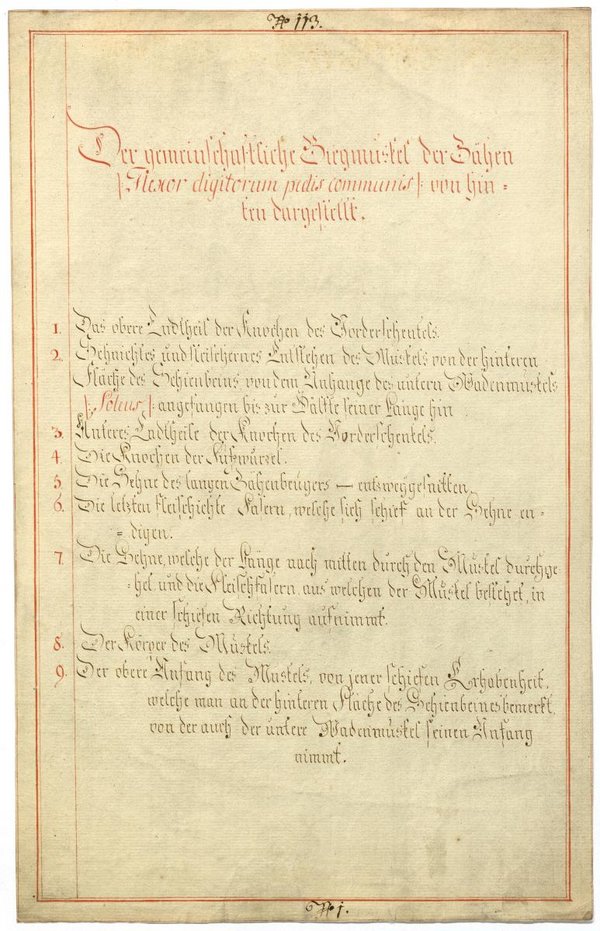 No 113.
Der gemeinschaftliche Biegmuskel der Zähen
/: Flexor digitorum pedis communis :/ von hin=
ten dargestellt.
1. Das obere Endtheil der Knochen des Vorderschenkels.
2. Sehnichtes und fleischernes Entstehen des Muskels von der hinteren
Fläche des Schienbeins, von dem Anhange des untern Wadenmuskels
/: Soleus :/ angefangen bis zur Hälfte seiner Länge hin
3. Unteres Endtheile der Knochen des Vorderschenkels.
4. Die Knochen der Fußwurzel.
5. Die Sehne des langen Zähenbeugers — entzweggesnitten
6. Die letzten fleischichte Fasern, welche sich schief an der Sehne en=
=digen.
7. Die Sehne, welche der Länge nach mitten durch den Muskel durchge=
=het, und die Fleischfasern, aus welchen der Muskel bestehet, in
einer schiefen Richtung aufnimmt.
8. Der Körper des Muskels.
9. Der obere Anfang des Muskels, von jener schiefen Erhabenheit,
welche man an der hinteren Fläche des Schienbeines bemerkt,
von der auch der untere Wadenmuskel seinen Anfang
nimmt.
No 1.